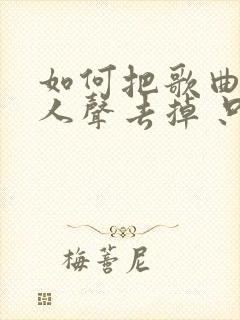 如何把歌曲
人聲去掉
梅薈尼